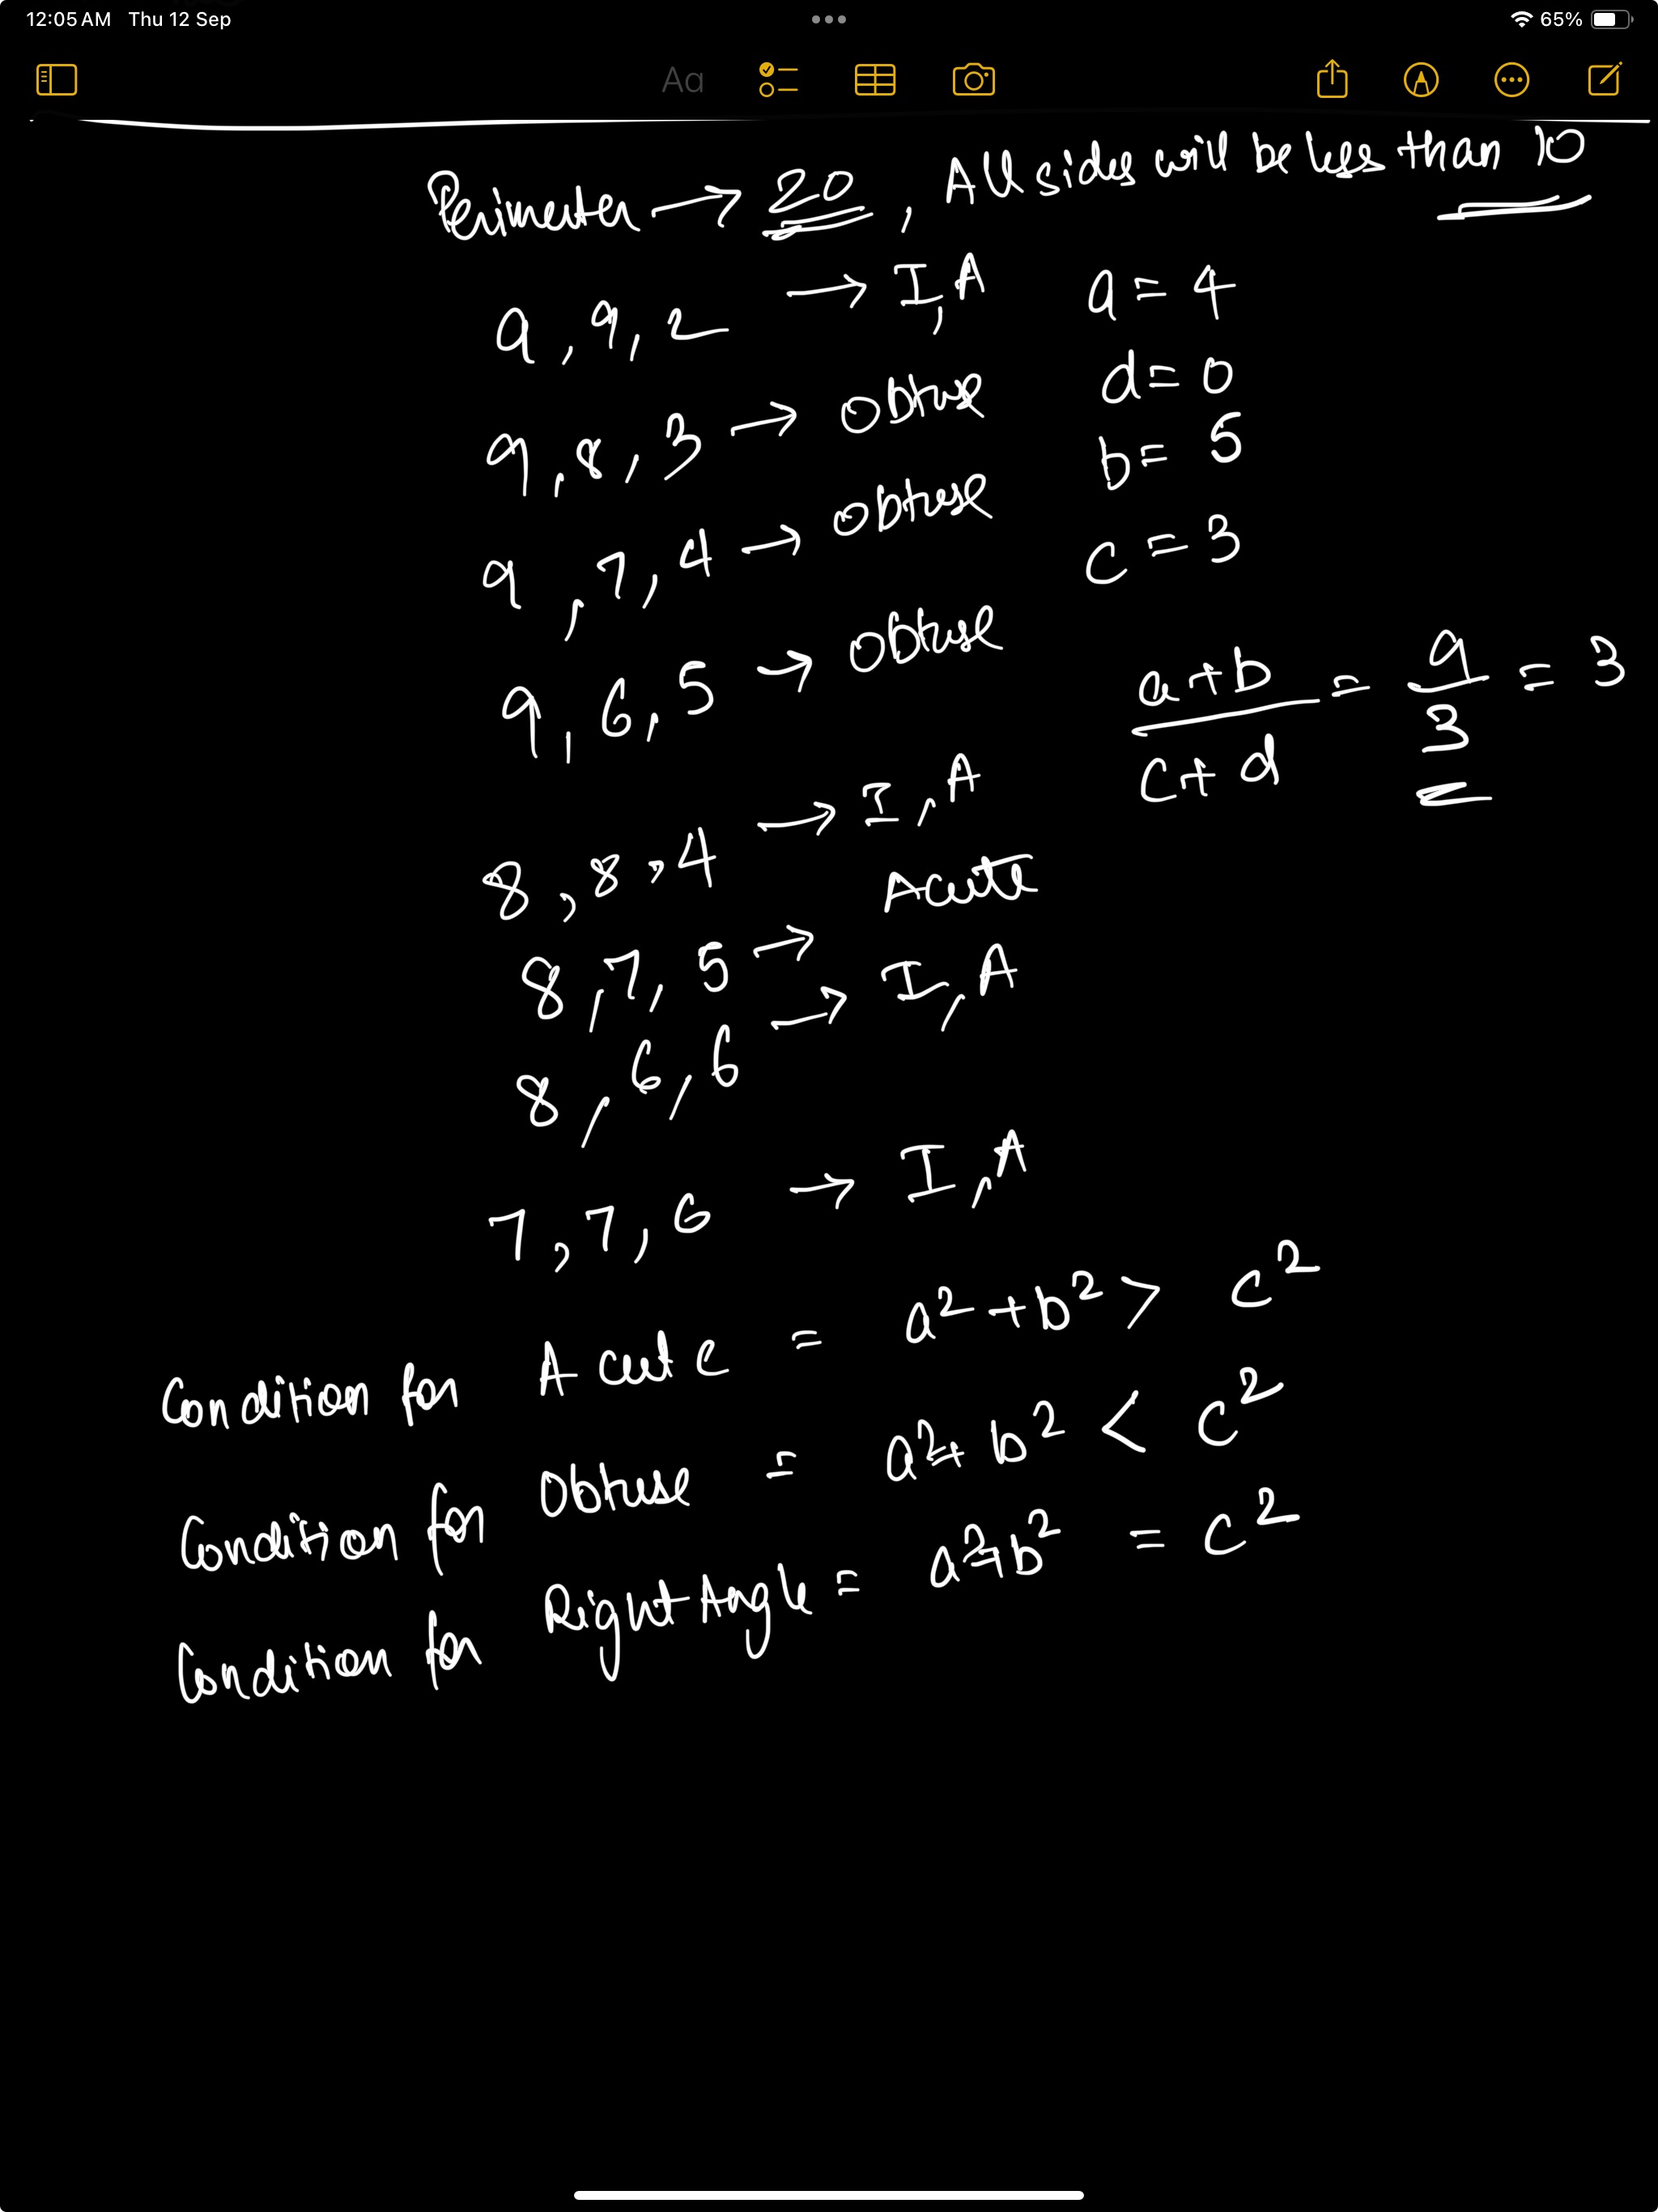 12:05 AM Thu 12 Sep 65%
Aa
Perimeter → 20, All sides will be less than 10
9, 9, 2 → I, A
a = 4
d = 0
9, 8, 3 → Obtuse
b = 5
9, 7, 4 → Obtuse
c = 3
9, 6, 5 → Obtuse
a+b / c+d = 9/3 = 3
8, 8, 4 → I, A
8, 7, 5 → Acute
8, 6, 6 → I, A
7, 7, 6 → I, A
Condition for Acute = a² + b² > c²
Condition for Obtuse = a² + b² < c²
Condition for Right Angle = a² + b² = c²